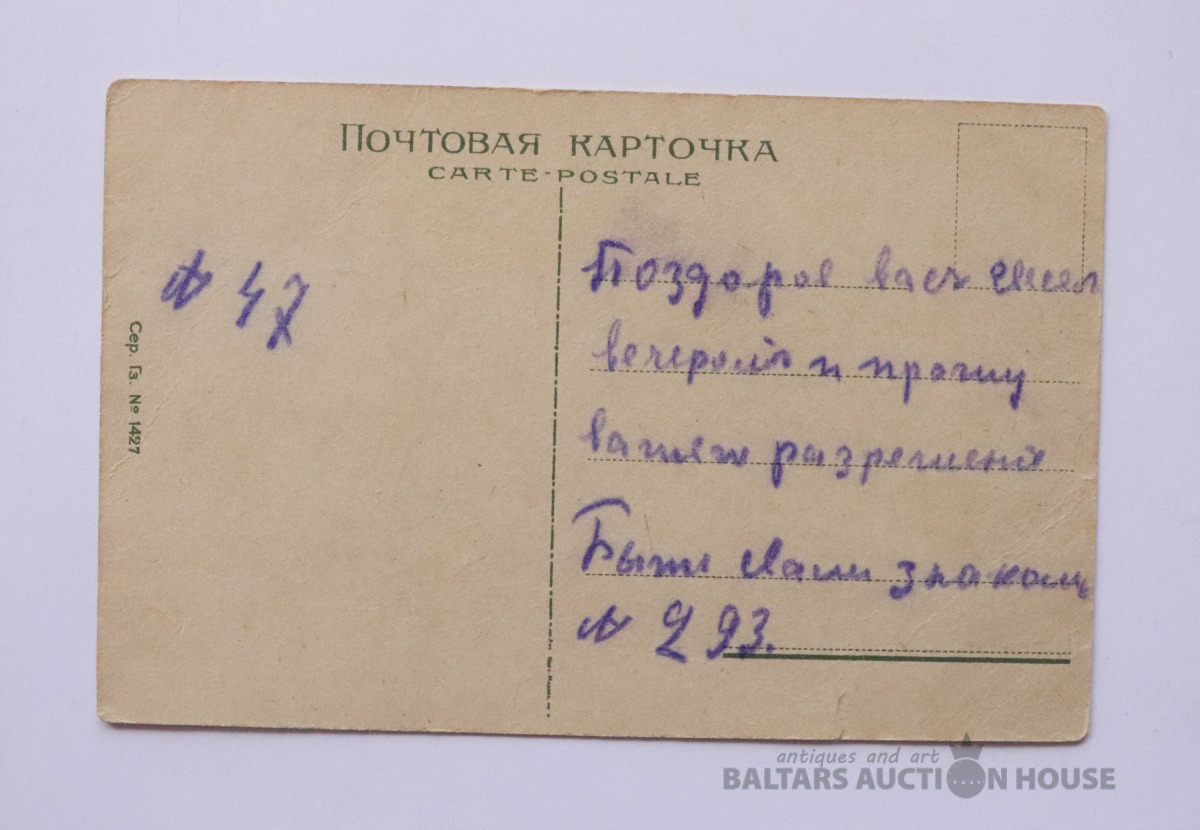 ПОЧТОВАЯ КАРТОЧКА
CARTE-POSTALE
Сер. Гз. № 1427
№ 47
Поздоров васъ
вечеромъ и прошу
вашего разрешения
Быть свами знакомъ
№ 293.
antiques and art
BALTARS AUCTION HOUSE